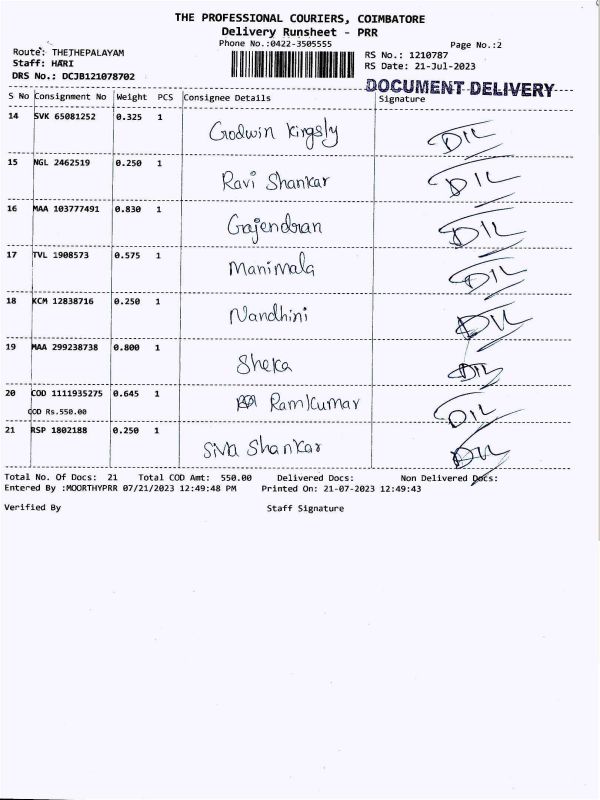 THE PROFESSIONAL COURIERS, COIMBATORE
Delivery Runsheet - PRR
Phone No.:0422-3505555 Page No.:2
Route: THETHEPALAYAM RS No.: 1210787
Staff: HARI RS Date: 21-Jul-2023
DRS No.: DCJB121078702 DOCUMENT DELIVERY
S No Consignment No Weight PCS Consignee Details Signature
14 SVK 65081252 0.325 1 Godwin Kingsly DIL
15 NGL 2462519 0.250 1 Ravi Shankar DIL
16 MAA 103777491 0.830 1 Gajendran DIL
17 TVL 1908573 0.575 1 Manimala DIL
18 KCM 12838716 0.250 1 Nandhini DIL
19 MAA 299238738 0.800 1 Sheka DIL
20 COD 1111935275 0.645 1 Ramkumar DIL
COD Rs.550.00
21 RSP 1802188 0.250 1 Siva Shankar DIL
Total No. Of Docs: 21 Total COD Amt: 550.00 Delivered Docs: Non Delivered Docs:
Entered By :MOORTHYPRR 07/21/2023 12:49:48 PM Printed On: 21-07-2023 12:49:43
Verified By Staff Signature